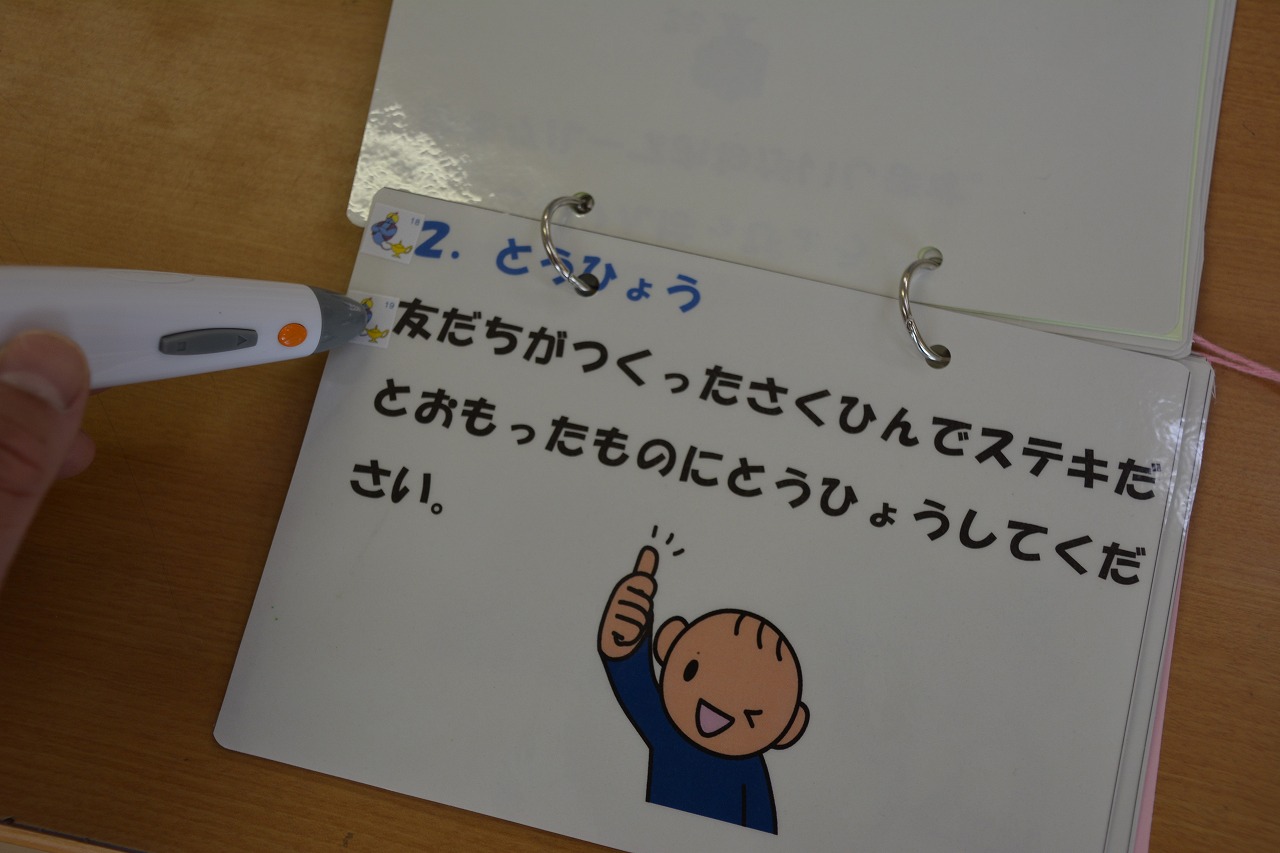 18
2. とうひょう
19
友だちがつくったさくひんでステキだ
とおもったものにとうひょうしてくだ
さい。